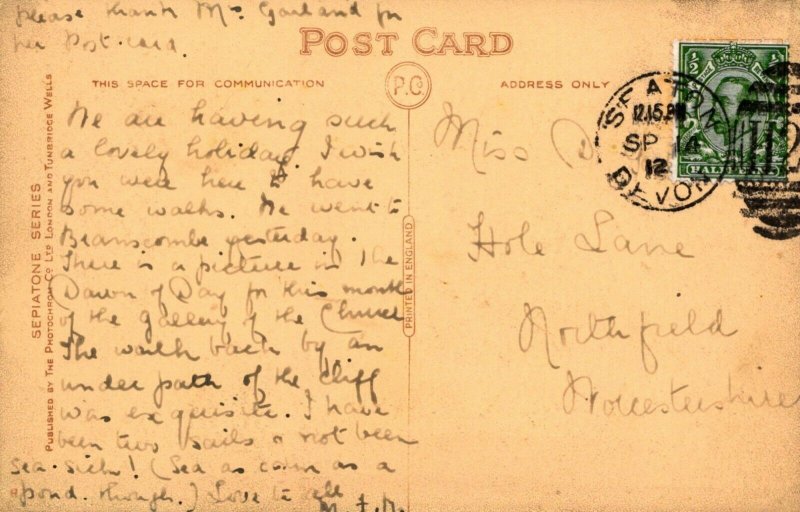 please thank Mrs Garland for
her Post-card.
POST CARD
THIS SPACE FOR COMMUNICATION
P.C.
ADDRESS ONLY
We are having such
a lovely holiday. I wish
you were here to have
some walks. We went to
Branscombe yesterday.
There is a picture in the
Dawn of Day for this month
of the gallery of the Church
The walk back by an
under path of the cliff
was exquisite. I have
been two sails & not been
sea-sick! (Sea as calm as a
pond. though.) Love to all
Miss D
Hole Lane
Northfield
Worcestershire
SEATON
12.15.PM
SP 14
12
DEVON
½
HALFPENNY
SEPIATONE SERIES
PUBLISHED BY THE PHOTOCHROM CO LTD LONDON AND TUNBRIDGE WELLS
PRINTED IN ENGLAND